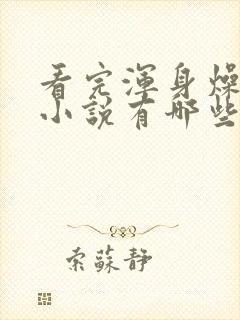 看完渾身燥
小說有哪些
索蘇靜